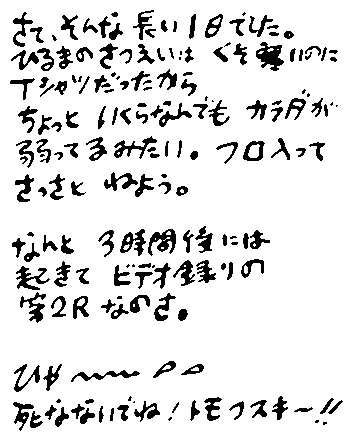 さて、そんな長い1日でした。
ひるまのさつえいは くそ寒いのに
Tシャツだったから
ちょっと いくらなんでも カラダが
弱ってるみたい。フロ入って
さっさと ねよう。
なんと 3時間後には
起きて ビデオ録りの
第2R なのさ。
ひゃ〜〜〜
死なないでね!トモフスキー!!